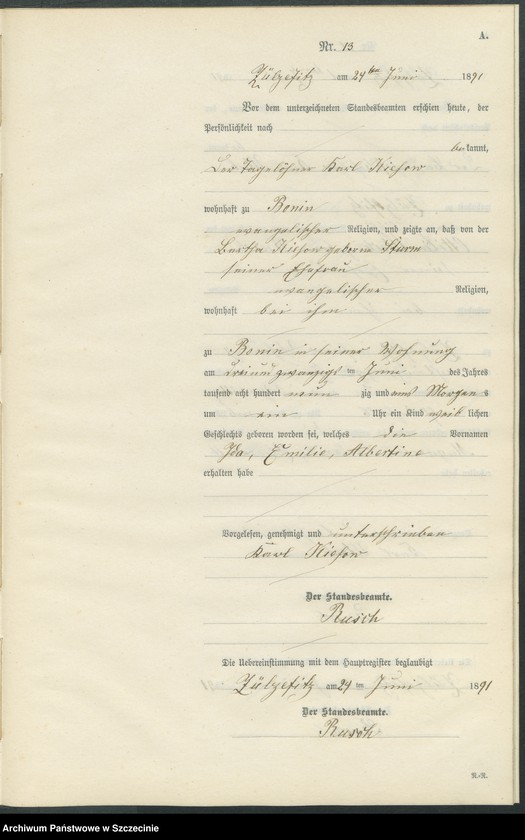 A.
Nr. 13
Zülzefitz am 24ten Juni 1891
Vor dem unterzeichneten Standesbeamten erschien heute, der
Persönlichkeit nach
bekannt,
Der Tagelöhner Karl Kiesow
wohnhaft zu Bonin
evangelischer Religion, und zeigte an, daß von der
Bertha Kiesow geborne Sturm
seiner Ehefrau
evangelischer Religion,
wohnhaft bei ihm
zu Bonin in seiner Wohnung
am dreiundzwanzigs ten Juni des Jahres
tausend acht hundert neun zig und eins Morgens
um ein Uhr ein Kind weiblichen
Geschlechts geboren worden sei, welches die Vornamen
Ida, Emilie, Albertine
erhalten habe
Vorgelesen, genehmigt und unterschrieben
Karl Kiesow
Der Standesbeamte.
Rusch
Die Uebereinstimmung mit dem Hauptregister beglaubigt
Zülzefitz am 24 ten Juni 1891
Der Standesbeamte.
Rusch
Archiwum Państwowe w Szczecinie